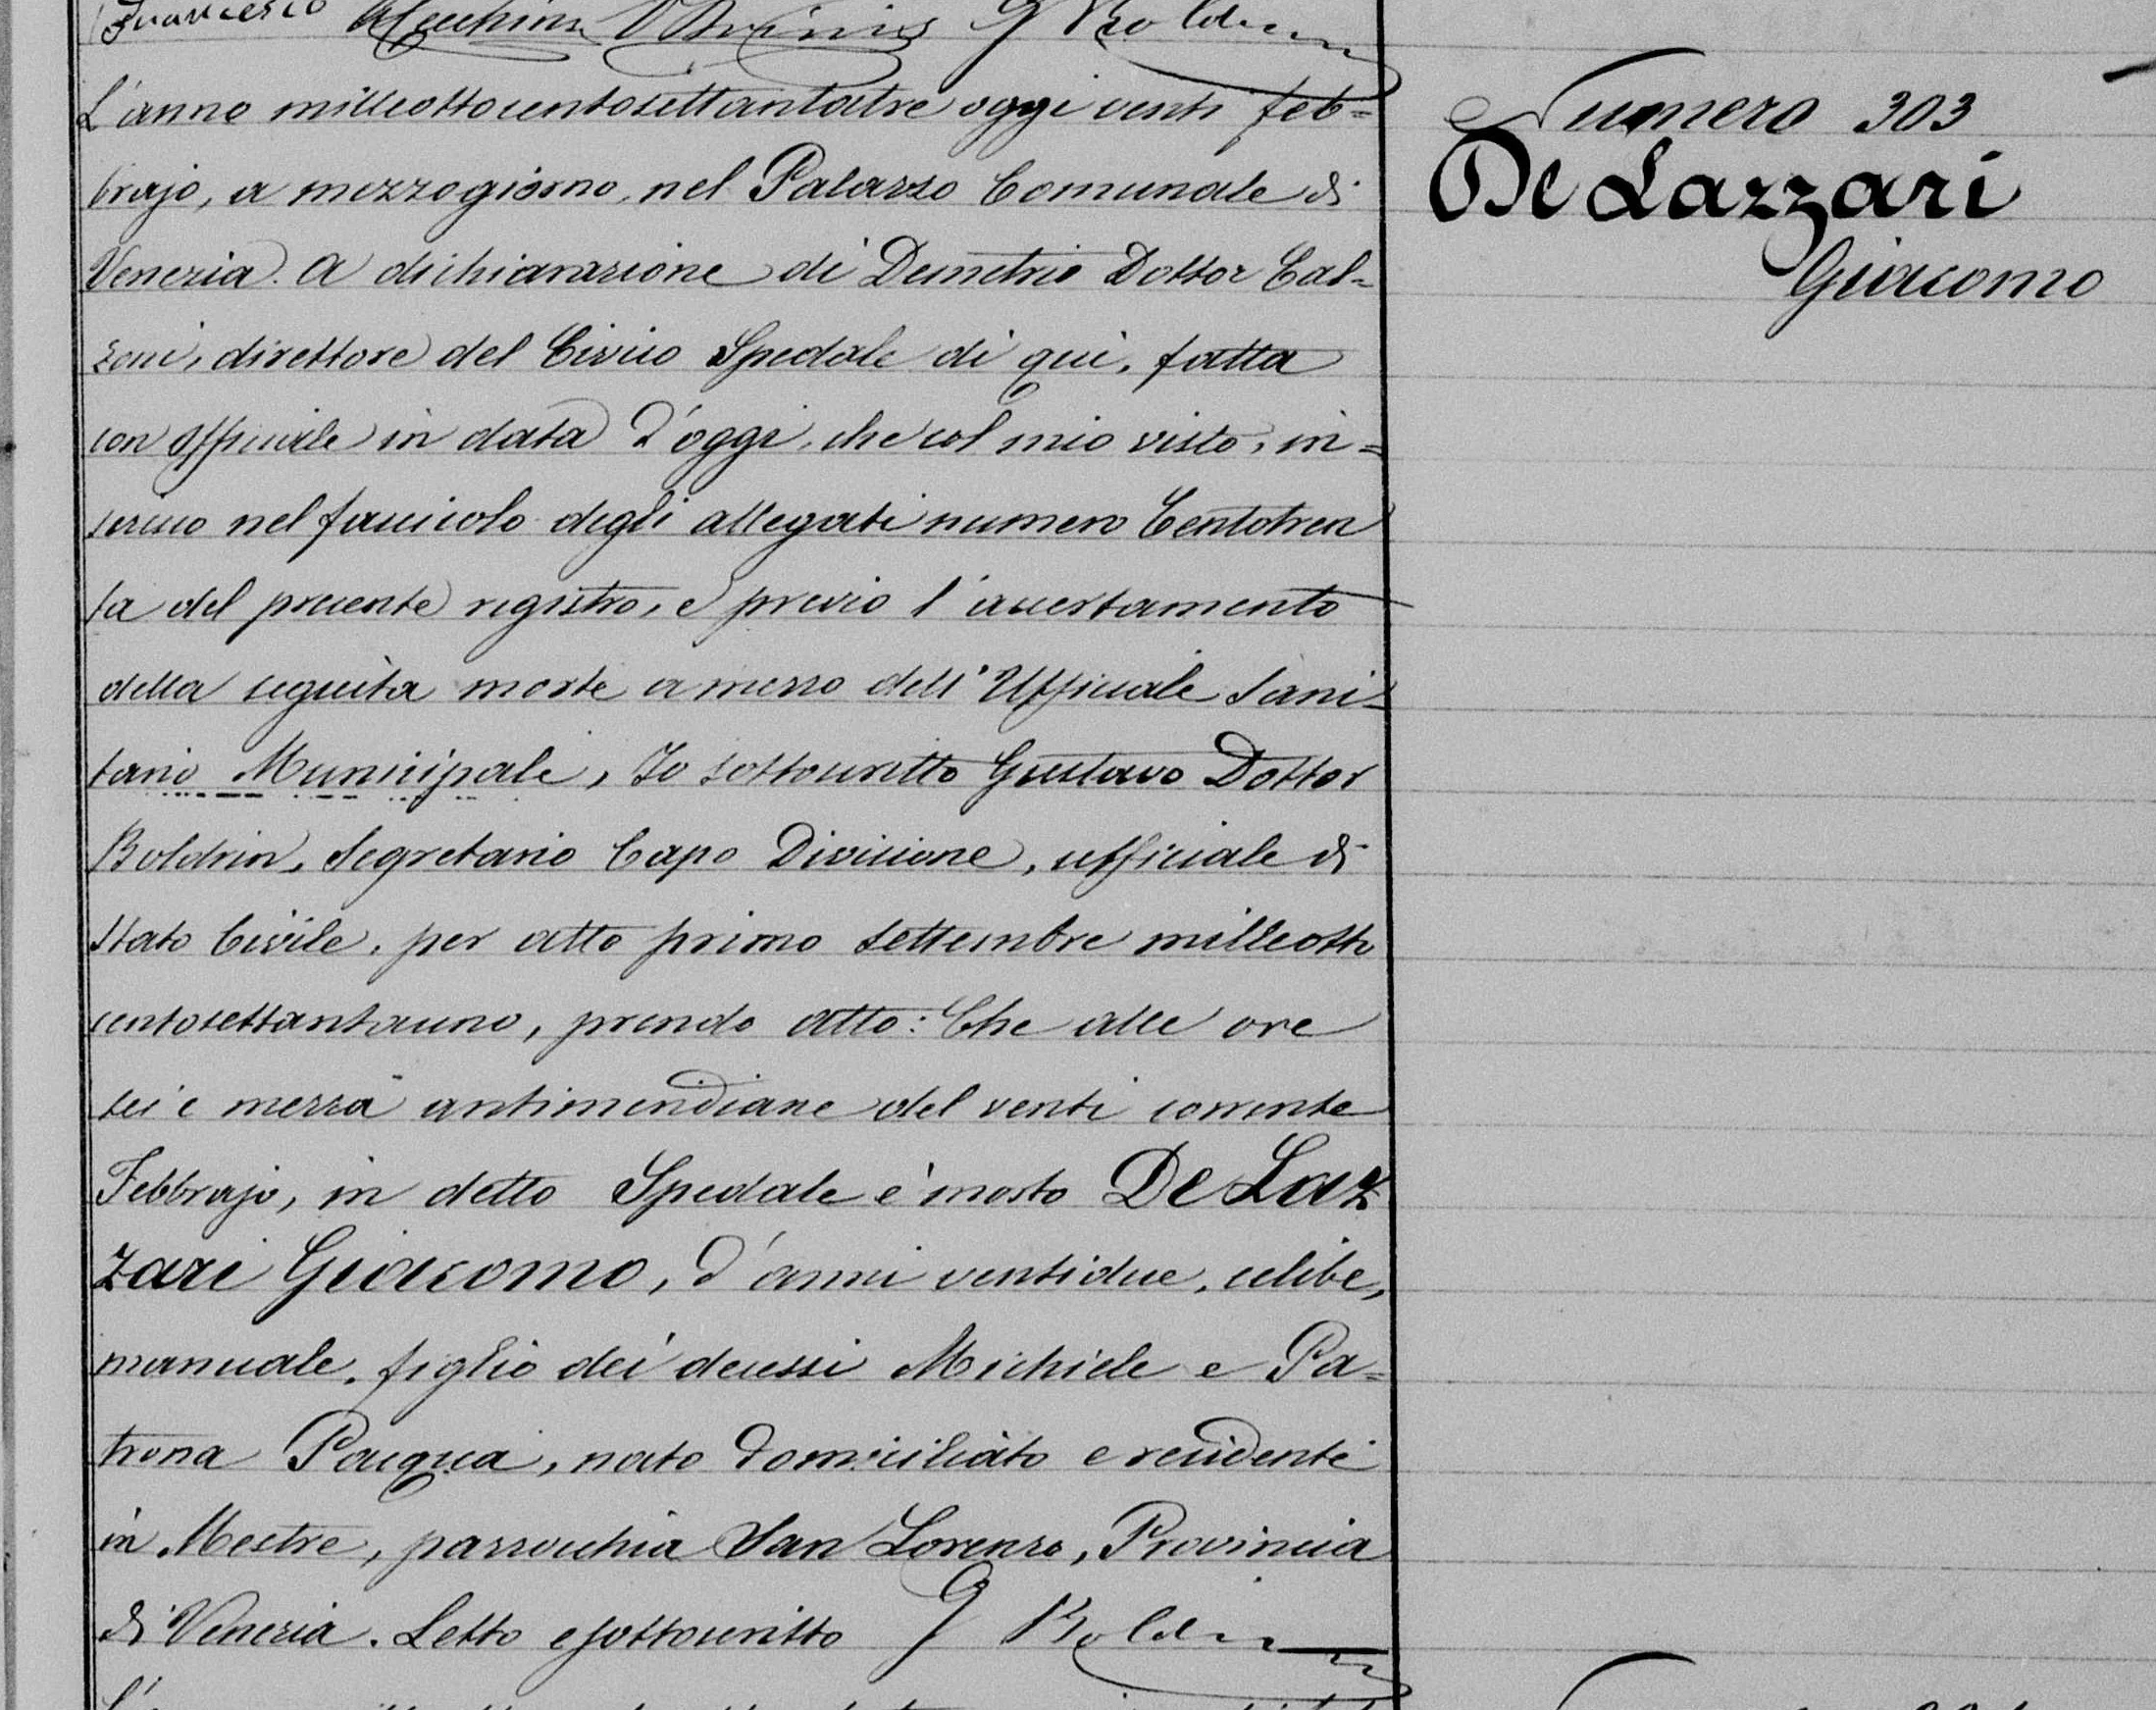 Francesco G Boldrin
L'anno milleottocentosettantatre oggi venti feb=
brajo, a mezzogiorno, nel Palazzo Comunale di
Venezia. A dichiarazione di Demetrio Dottor Cal=
zoni, direttore del Civico Spedale di qui, fatta
con officiale in data d'oggi, che col mio visto, in=
serisco nel fascicolo degli allegati numero Centotren
ta del presente registro, e previo l'accertamento
della seguita morte a mezzo dell'Ufficiale Sani=
tario Municipale, Io sottoscritto Gustavo Dottor
Boldrin, Segretario Capo Divisione, ufficiale di
Stato Civile, per atto primo settembre milleotto
centosettantauno, prendo atto: Che alle ore
sei e mezza antimeridiane del venti corrente
Febbrajo, in detto Spedale è morto De Laz
zari Giacomo, d'anni ventidue, celibe,
manuale, figlio dei decessi Michiele e Pa=
trona Pasqua, nato domiciliato e residente
in Mestre, parrocchia San Lorenzo, Provincia
di Venezia. Letto e sottoscritto G Boldrin
Numero 303
De Lazzari
Giacomo